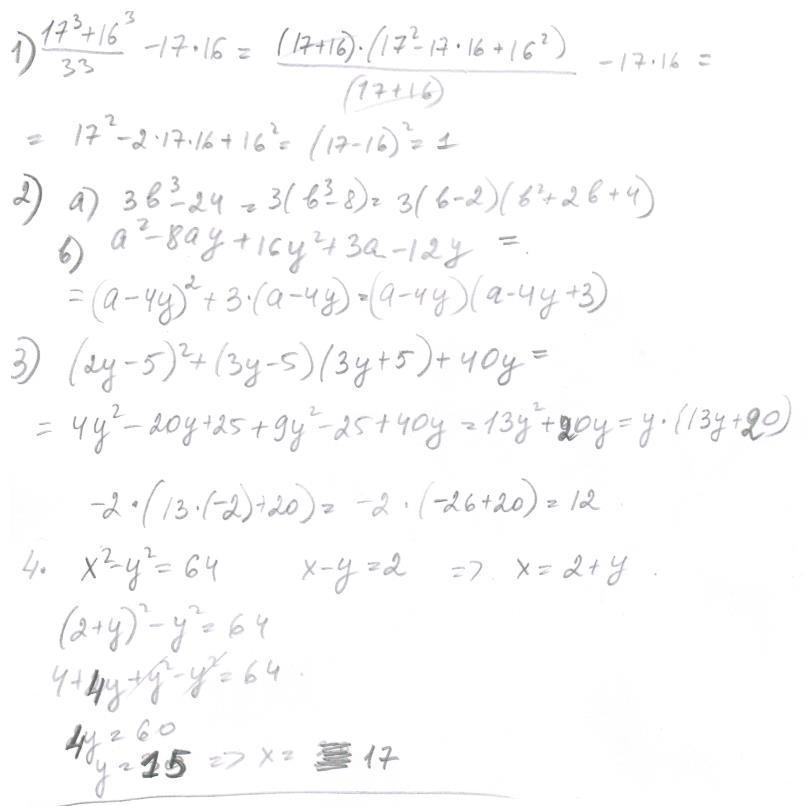 1) (17³+16³)/33 − 17·16 = (17+16)·(17²−17·16+16²)/(17+16) − 17·16 =
= 17²−2·17·16+16² = (17−16)² = 1
2) а) 3b³−24 = 3(b³−8) = 3(b−2)(b²+2b+4)
в) a²−8ay+16y²+3a−12y =
= (a−4y)²+3·(a−4y) = (a−4y)(a−4y+3)
3) (2y−5)²+(3y−5)(3y+5)+40y =
= 4y²−20y+25+9y²−25+40y = 13y²+20y = y·(13y+20)
−2·(13·(−2)+20) = −2·(−26+20) = 12
4. x²−y² = 64 x−y = 2 => x = 2+y
(2+y)²−y² = 64
4+4y+y²−y² = 64
4y = 60
y = 15 => x = 17